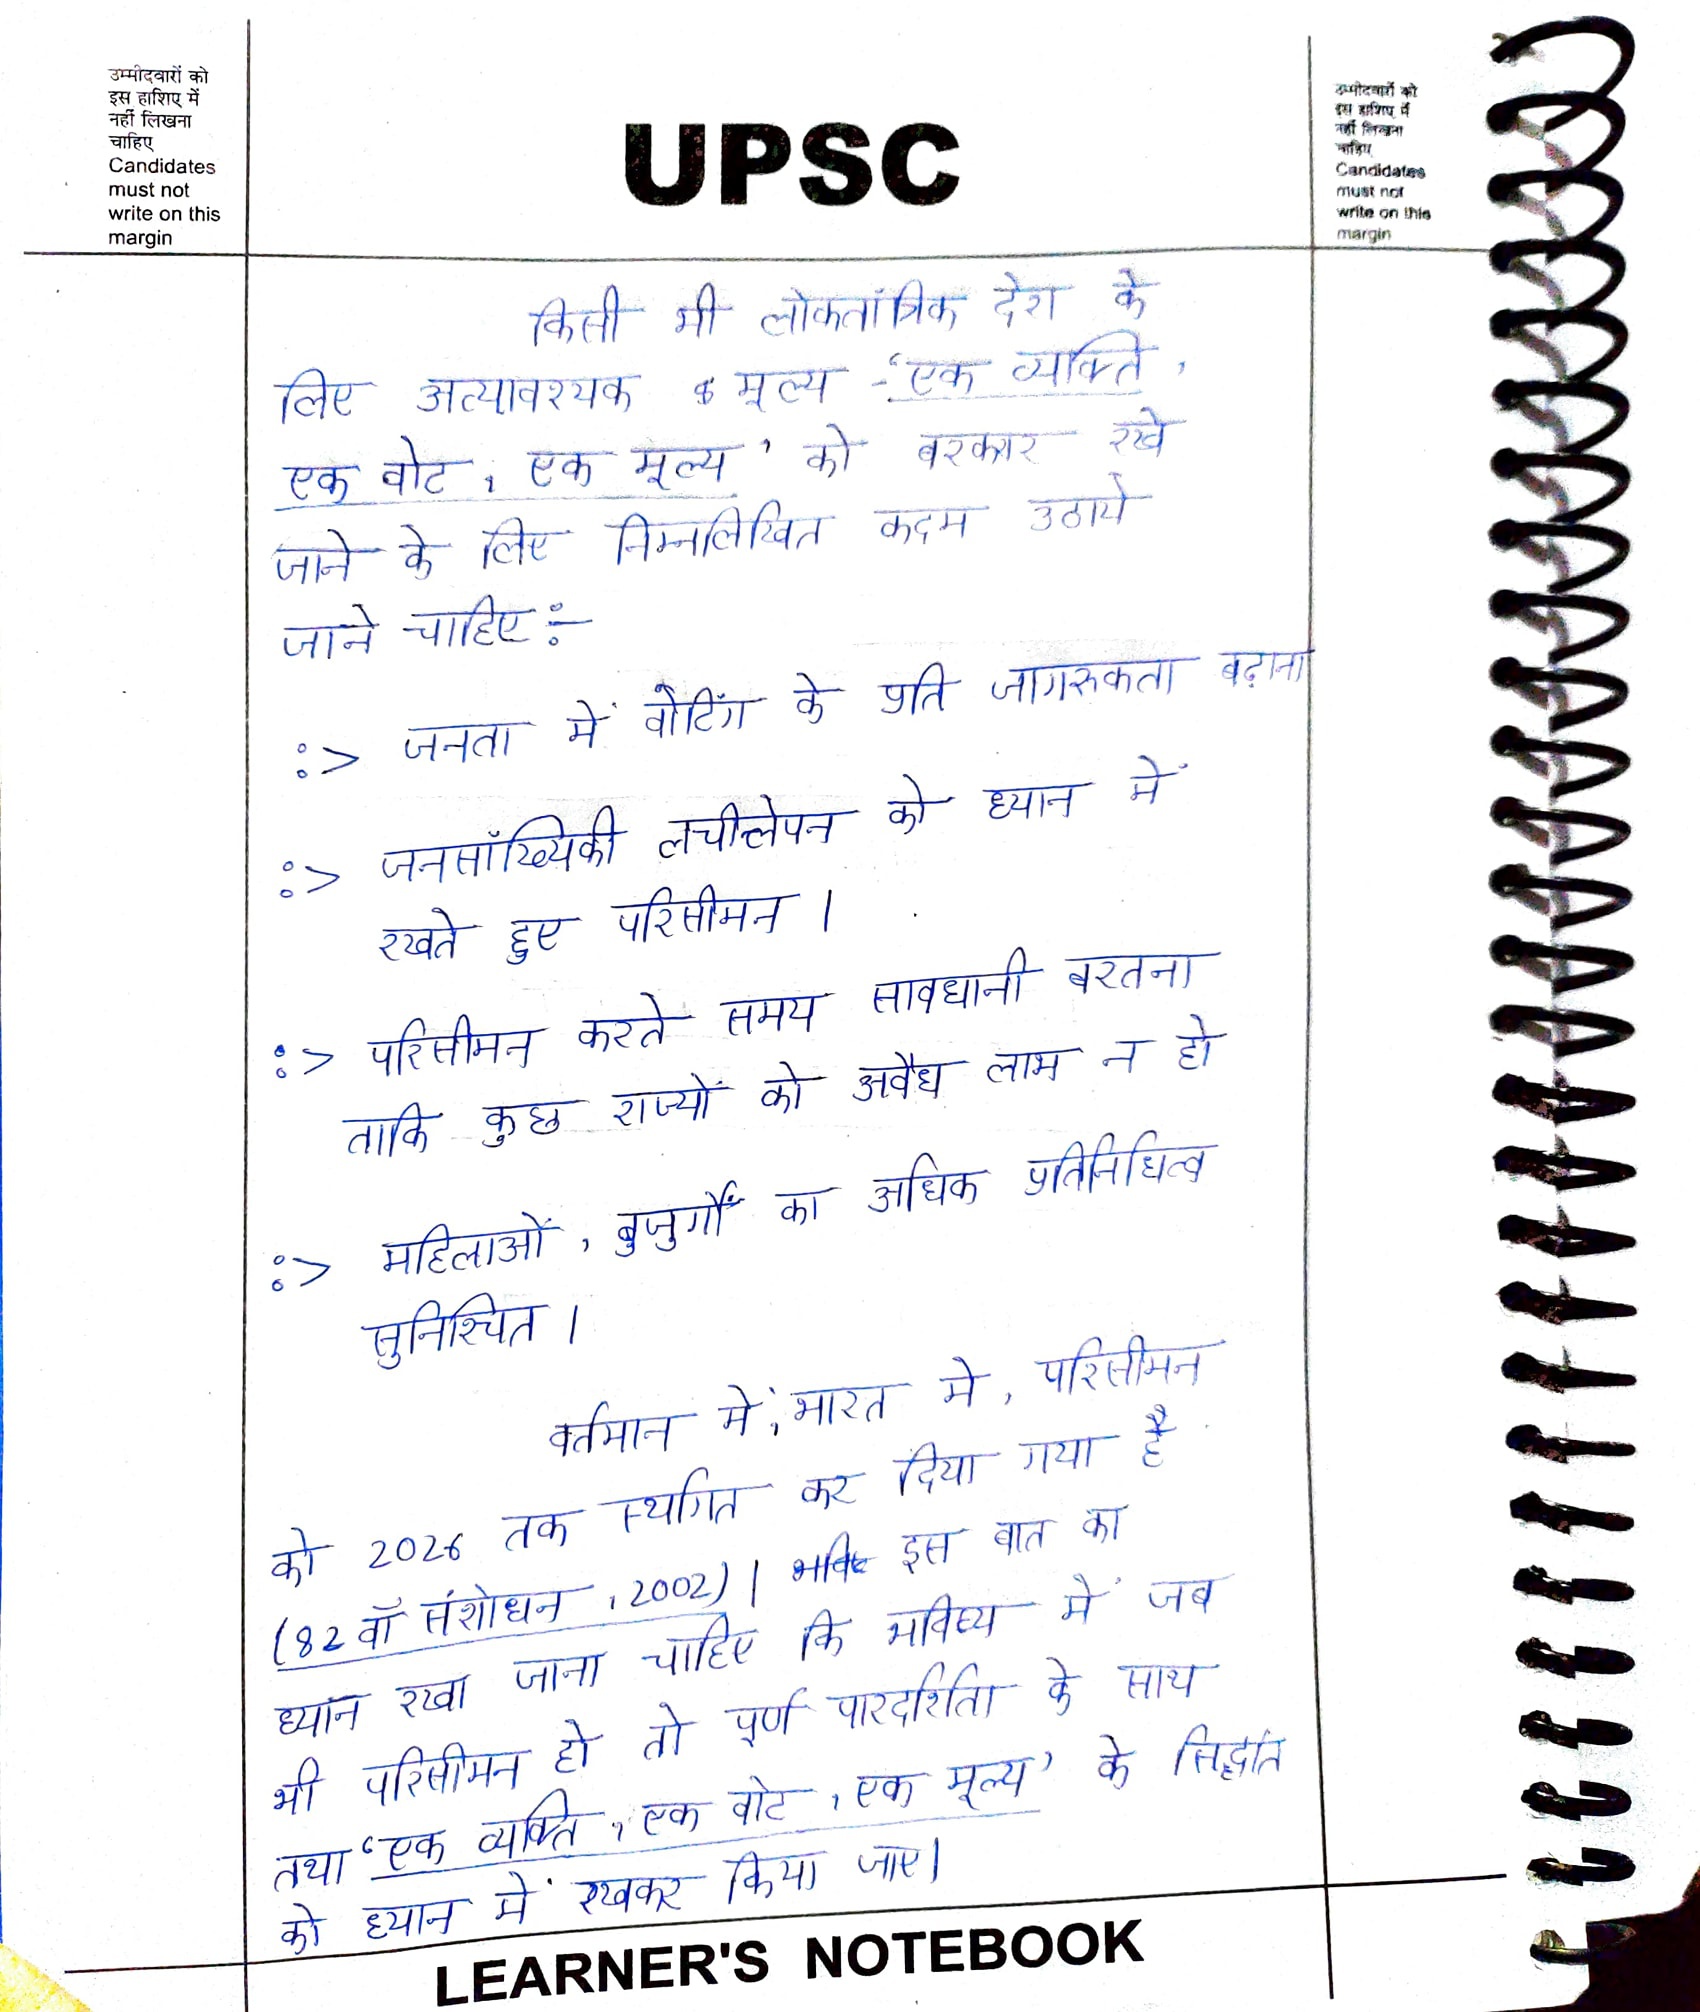 उम्मीदवारों को
इस हाशिए में
नहीं लिखना
चाहिए
Candidates
must not
write on this
margin
UPSC
उम्मीदवारों को
इस हाशिए में
नहीं लिखना
चाहिए
Candidates
must not
write on this
margin
किसी भी लोकतांत्रिक देश के
लिए अत्यावश्यक मूल्य - 'एक व्यक्ति,
एक वोट, एक मूल्य' को बरकरार रखे
जाने के लिए निम्नलिखित कदम उठाये
जाने चाहिए :-
:> जनता में वोटिंग के प्रति जागरुकता बढ़ाना
:> जनसाँख्यिकी लचीलेपन को ध्यान में
रखते हुए परिसीमन ।
:> परिसीमन करते समय सावधानी बरतना
ताकि कुछ राज्यों को अवैध लाभ न हो
:> महिलाओं, बुजुर्गों का अधिक प्रतिनिधित्व
सुनिश्चित ।
वर्तमान में, भारत मे, परिसीमन
को 2026 तक स्थगित कर दिया गया है
(82 वाँ संशोधन, 2002) । इस बात का
ध्यान रखा जाना चाहिए कि भविष्य में जब
भी परिसीमन हो तो पूर्ण पारदर्शिता के साथ
तथा 'एक व्यक्ति, एक वोट, एक मूल्य' के सिद्धांत
को ध्यान में रखकर किया जाए।
LEARNER'S NOTEBOOK